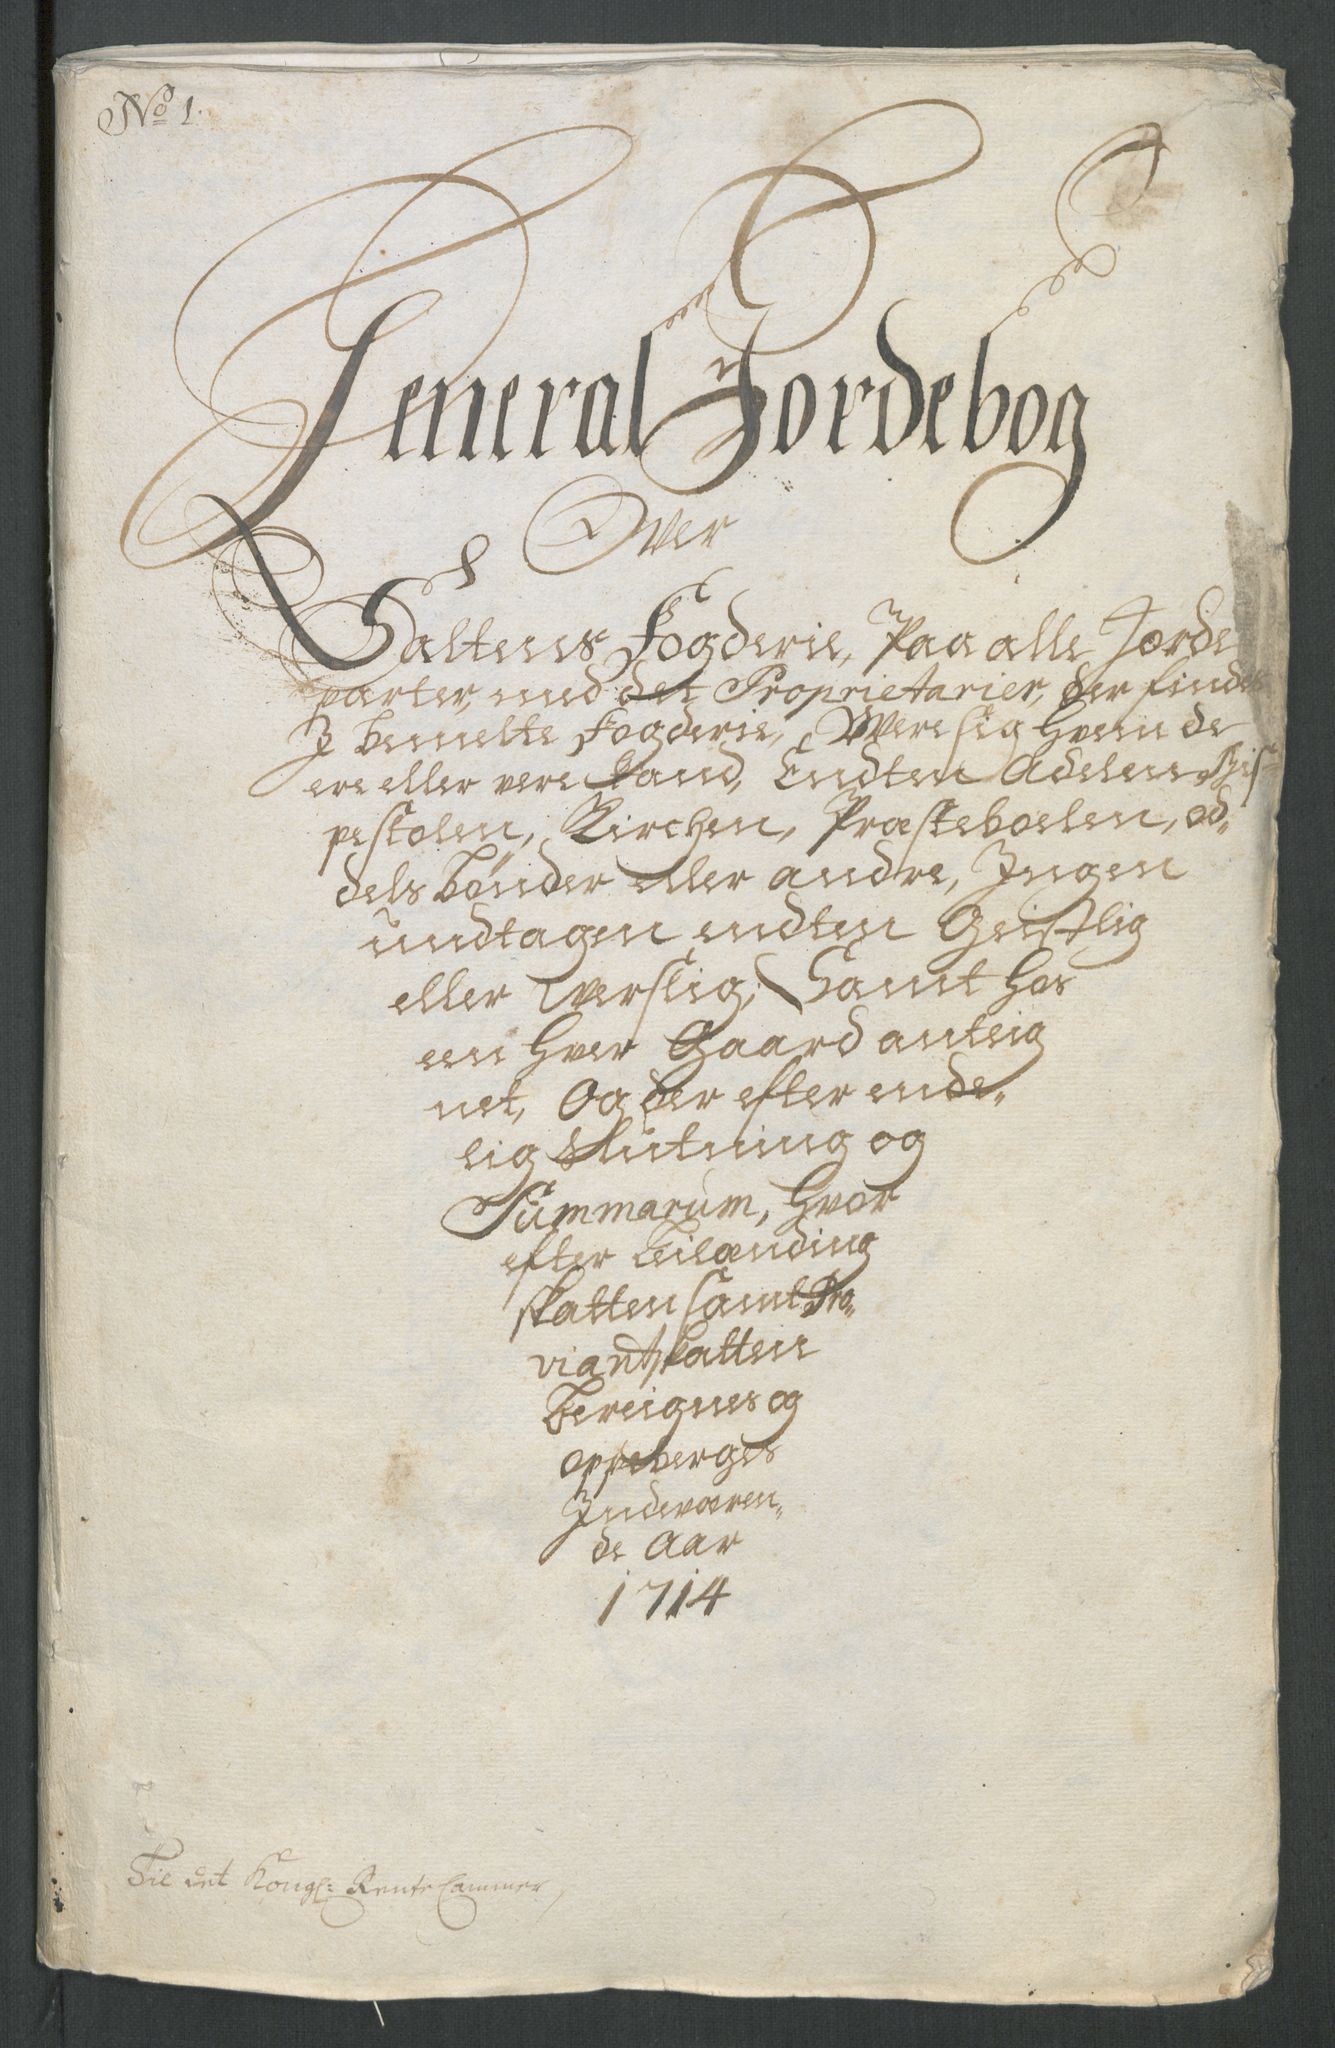 No 1.
General Jordebog
Over
Saltens Fogderie, Paa alle Jorde
parter, med det Proprietarier, der findes
J bemelte Fogderie, Were sig Hvem de
ere eller vere kand, Endten Adelen, Bis-
pestolen, Kirchen, Præsteboelen, od„
dels bønder eller andre, Jngen
undtagen endten Geistlig
eller verslig; Samt hos
een hver Gaard anteig
net, Og der efter ende„
lig Slutning og
Summarum, hvor
efter Leilænding
skatten samt Pro„
viantskatten
bereignes og
oppeberges
Jndeværen„
de Aar
1714
Til det Kongl: Rente Cammer,